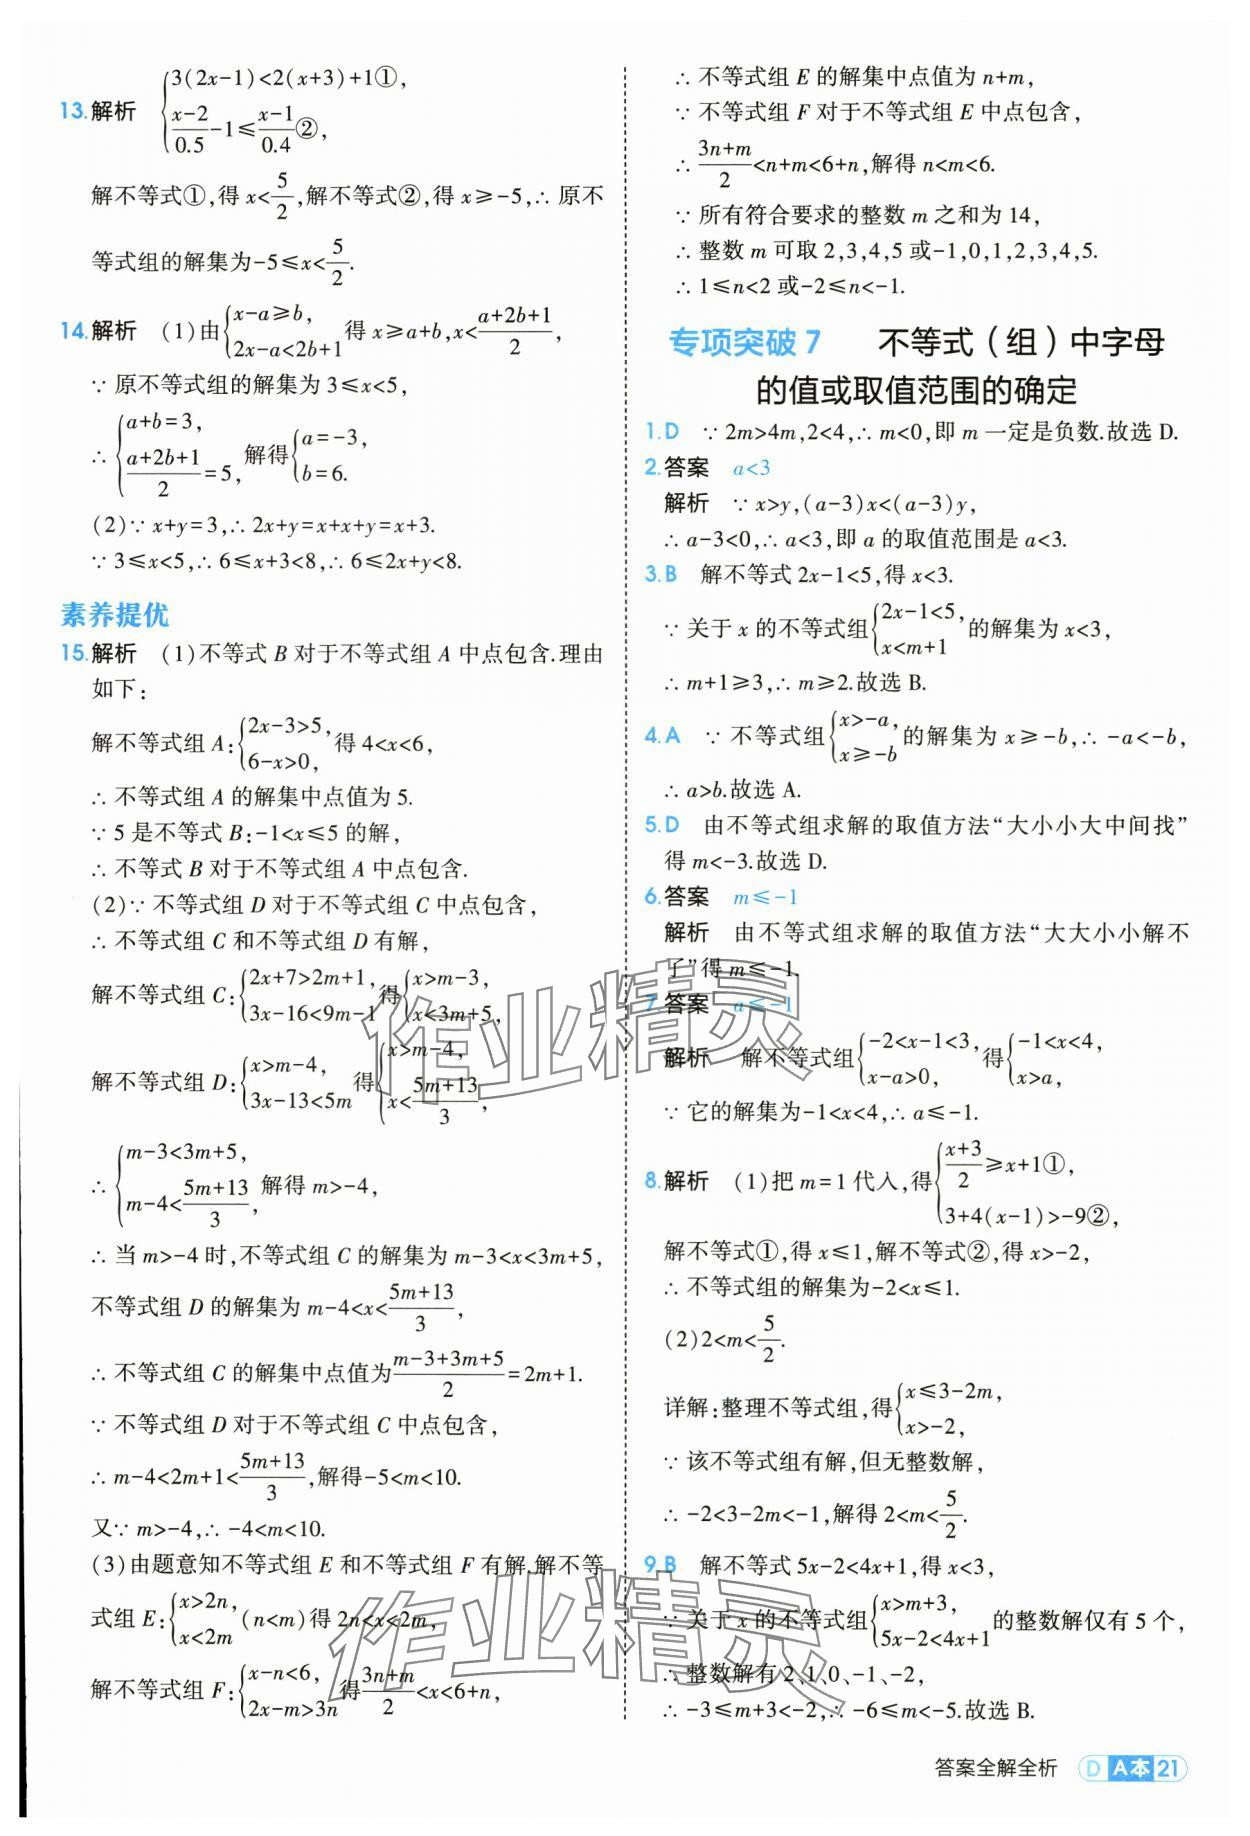 13.解析 {3(2x-1)<2(x+3)+1①,
x-2/0.5-1≤x-1/0.4②,
解不等式①,得x<5/2,解不等式②,得x≥-5,∴原不
等式组的解集为-5≤x<5/2.
14.解析 (1)由{x-a≥b, 2x-a<2b+1 得x≥a+b,x<(a+2b+1)/2,
∵原不等式组的解集为3≤x<5,
∴{a+b=3, (a+2b+1)/2=5, 解得{a=-3, b=6.
(2)∵x+y=3,∴2x+y=x+x+y=x+3.
∵3≤x<5,∴6≤x+3<8,∴6≤2x+y<8.
素养提优
15.解析 (1)不等式B对于不等式组A中点包含.理由
如下:
解不等式组A:{2x-3>5, 6-x>0, 得4<x<6,
∴不等式组A的解集中点值为5.
∵5是不等式B:-1<x≤5的解,
∴不等式B对于不等式组A中点包含.
(2)∵不等式组D对于不等式组C中点包含,
∴不等式组C和不等式组D有解,
解不等式组C:{2x+7>2m+1, 3x-16<9m-1 得{x>m-3, x<3m+5,
解不等式组D:{x>m-4, 3x-13<5m 得{x>m-4, x<(5m+13)/3,
∴{m-3<3m+5, m-4<(5m+13)/3, 解得m>-4,
∴当m>-4时,不等式组C的解集为m-3<x<3m+5,
不等式组D的解集为m-4<x<(5m+13)/3,
∴不等式组C的解集中点值为(m-3+3m+5)/2=2m+1.
∵不等式组D对于不等式组C中点包含,
∴m-4<2m+1<(5m+13)/3,解得-5<m<10.
又∵m>-4,∴-4<m<10.
(3)由题意知不等式组E和不等式组F有解,解不等
式组E:{x>2n, x<2m (n<m)得2n<x<2m,
解不等式组F:{x-n<6, 2x-m>3n 得(3n+m)/2<x<6+n,
∴不等式组E的解集中点值为n+m,
∵不等式组F对于不等式组E中点包含,
∴(3n+m)/2<n+m<6+n,解得n<m<6.
∵所有符合要求的整数m之和为14,
∴整数m可取2,3,4,5或-1,0,1,2,3,4,5.
∴1≤n<2或-2≤n<-1.
专项突破7 不等式(组)中字母
的值或取值范围的确定
1.D ∵2m>4m,2<4,∴m<0,即m一定是负数.故选D.
2.答案 a<3
解析 ∵x>y,(a-3)x<(a-3)y,
∴a-3<0,∴a<3,即a的取值范围是a<3.
3.B 解不等式2x-1<5,得x<3.
∵关于x的不等式组{2x-1<5, x<m+1 的解集为x<3,
∴m+1≥3,∴m≥2.故选B.
4.A ∵不等式组{x>-a, x≥-b 的解集为x≥-b,∴-a<-b,
∴a>b.故选A.
5.D 由不等式组求解的取值方法“大小小大中间找”
得m<-3.故选D.
6.答案 m≤-1
解析 由不等式组求解的取值方法“大大小小解不
了”得m≤-1.
7.答案 a≤-1
解析 解不等式组{-2<x-1<3, x-a>0, 得{-1<x<4, x>a,
∵它的解集为-1<x<4,∴a≤-1.
8.解析 (1)把m=1代入,得{(x+3)/2≥x+1①, 3+4(x-1)>-9②,
解不等式①,得x≤1,解不等式②,得x>-2,
∴不等式组的解集为-2<x≤1.
(2)2<m<5/2.
详解:整理不等式组,得{x≤3-2m, x>-2,
∵该不等式组有解,但无整数解,
∴-2<3-2m<-1,解得2<m<5/2.
9.B 解不等式5x-2<4x+1,得x<3,
∵关于x的不等式组{x>m+3, 5x-2<4x+1 的整数解仅有5个,
∴整数解有2、1、0、-1、-2,
∴-3≤m+3<-2,∴-6≤m<-5.故选B.
作业精灵
作业精灵
答案全解全析 D A本 21